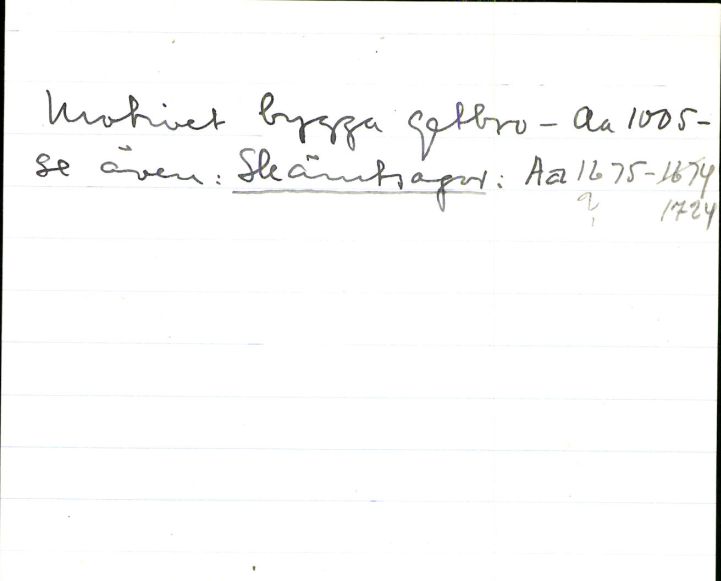 Motivet bygga getbro – Aa 1005-
se även: Skämtsagor: Aa 1675-1674
1724